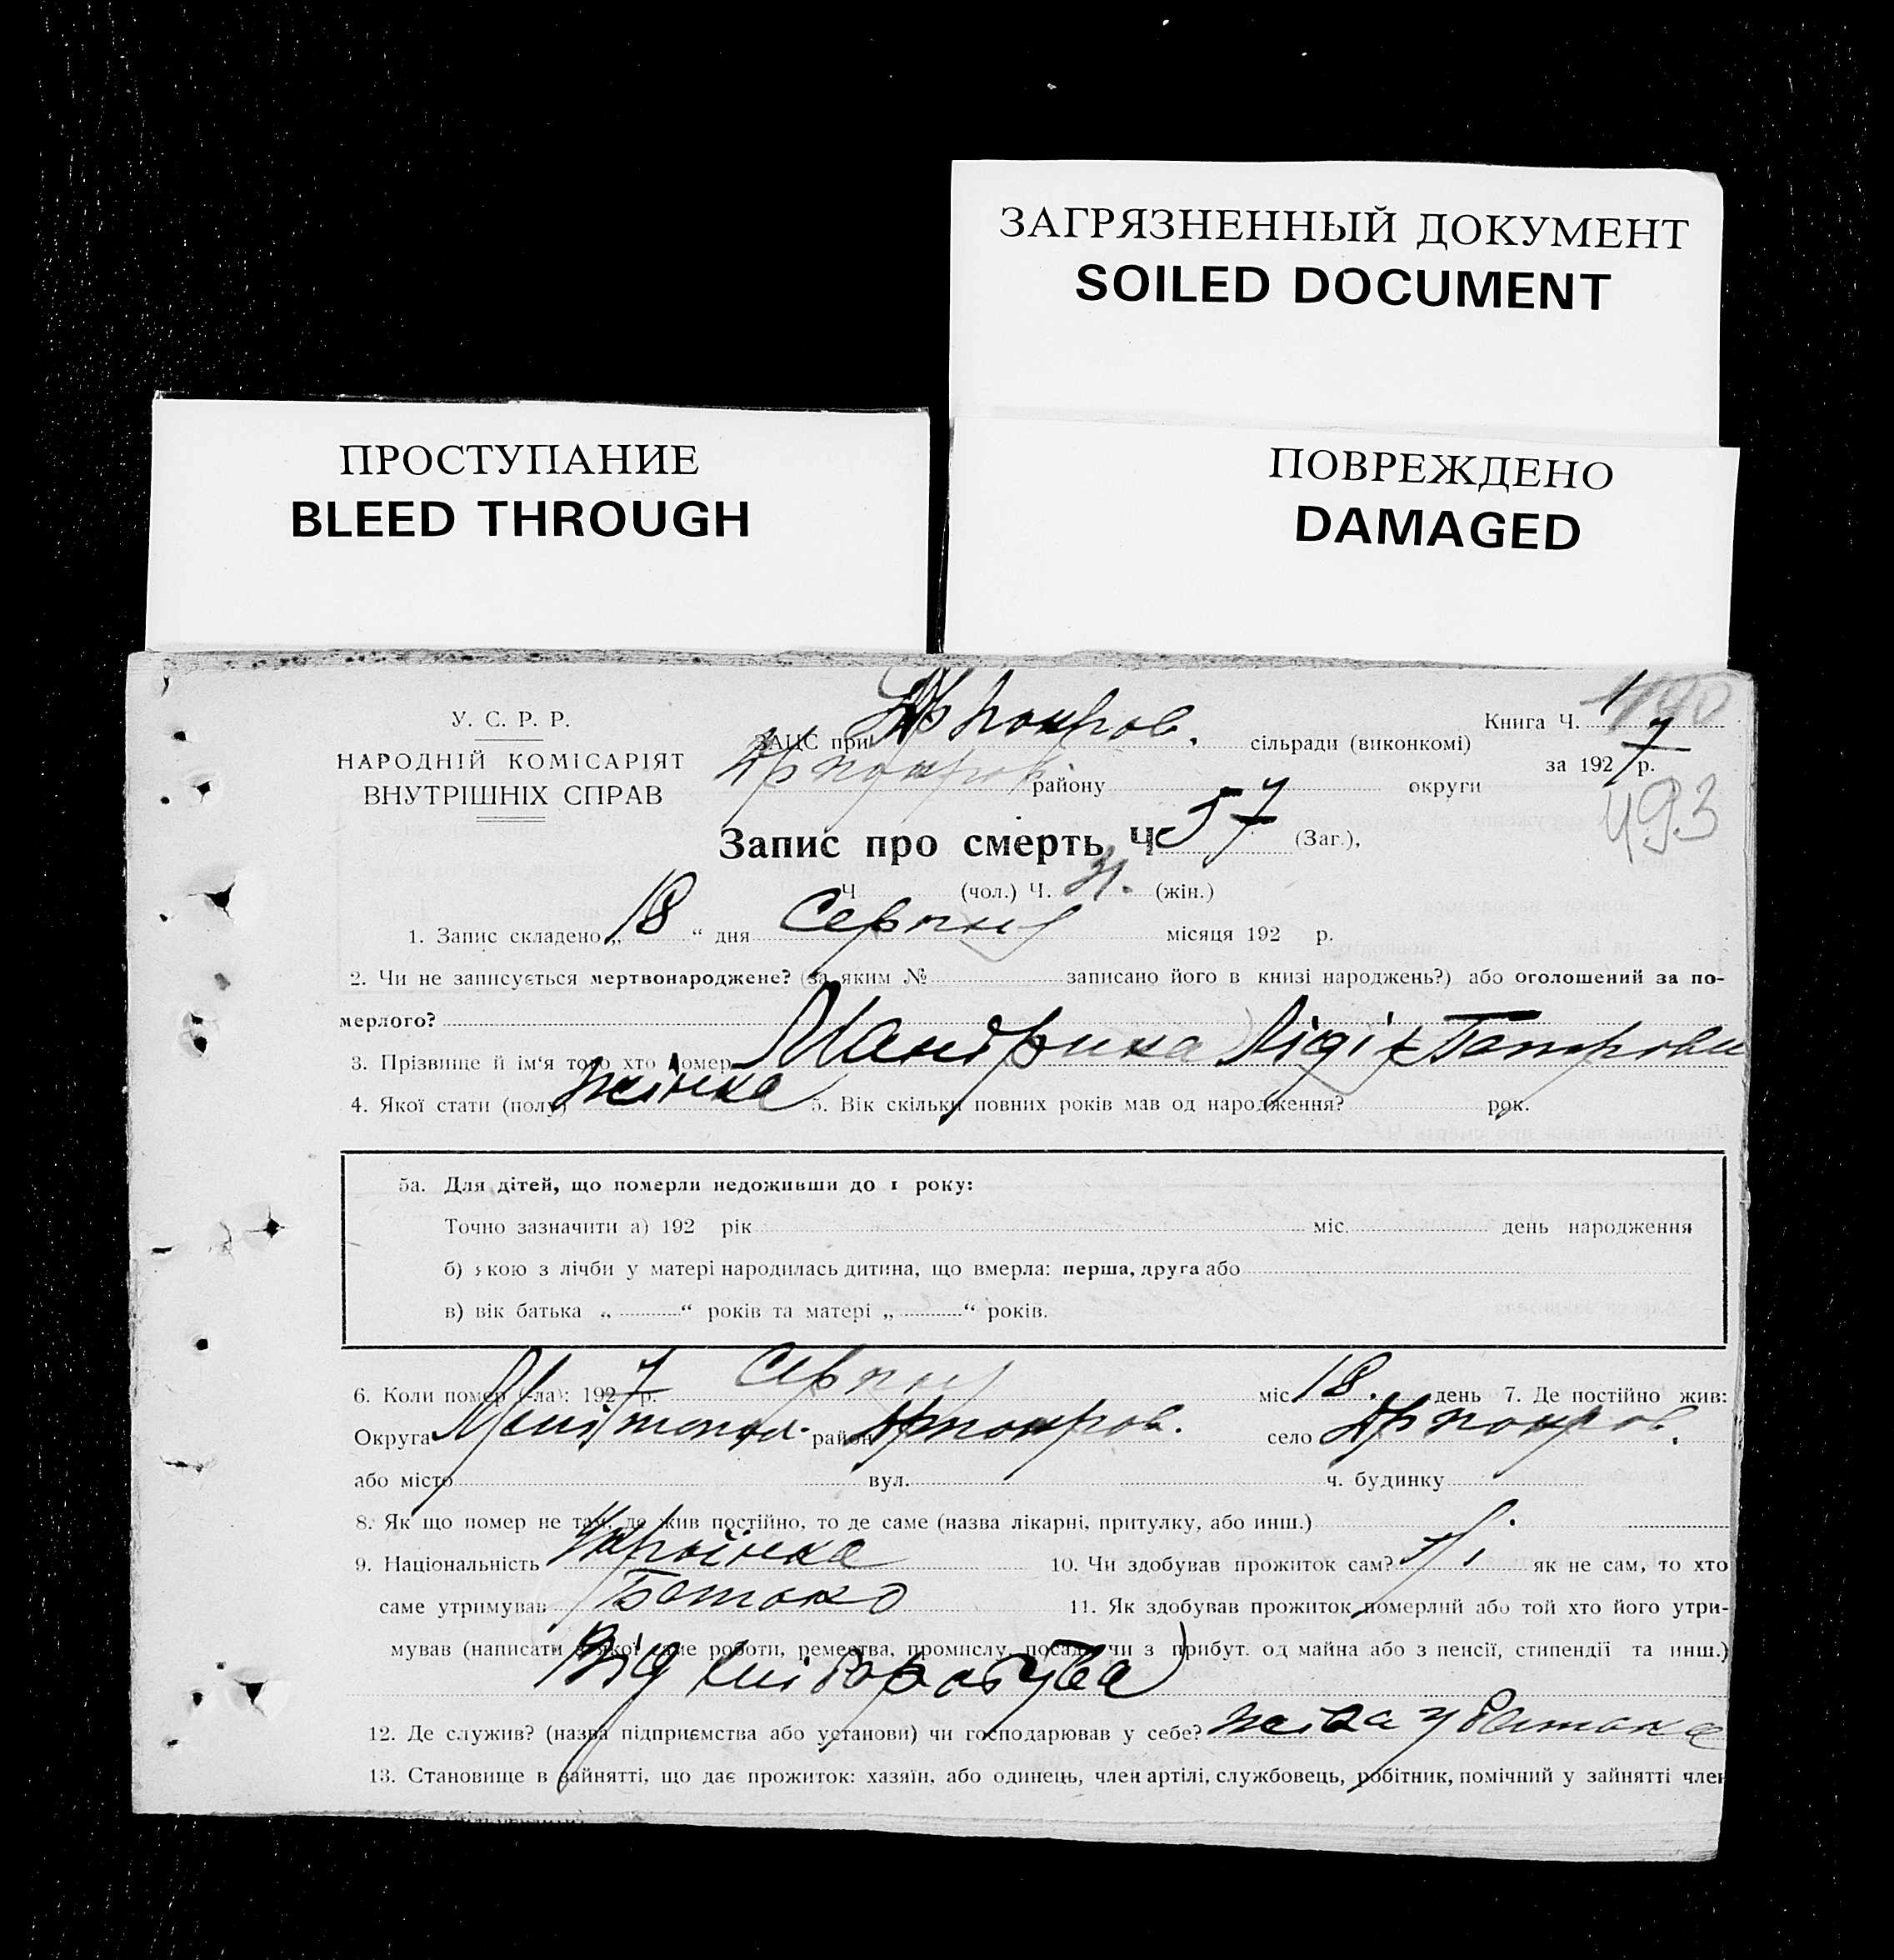 ЗАГРЯЗНЕННЫЙ ДОКУМЕНТ
SOILED DOCUMENT
ПРОСТУПАНИЕ
BLEED THROUGH
ПОВРЕЖДЕНО
DAMAGED
У. С. Р. Р.
НАРОДНІЙ КОМІСАРІЯТ
ВНУТРІШНІХ СПРАВ
ЗАЦС при сільради (виконкомі)
району округи
Книга Ч. 1
за 1927 р.
493
Запис про смерть Ч 57 (Заг.),
Ч (чол.) Ч. 31. (жін.)
1. Запис складено „18“ дня Серпня місяця 192 р.
2. Чи не записується мертвонароджене? (за яким № записано його в книзі народжень?) або оголошений за по-
мерлого?
3. Прізвище й ім‘я того хто помер Лідія
4. Якої стати (полу) жінка 5. Вік скільки повних років мав од народження? рок.
5а. Для дітей, що померли недоживши до 1 року:
Точно зазначити а) 192 рік міс. день народження
б) якою з лічби у матері народилась дитина, що вмерла: перша, друга або
в) вік батька „ “ років та матері „ “ років.
6. Коли помер (-ла): 1927 р. Серпня міс 18. день 7. Де постійно жив:
Округа Мелітопол. район село
або місто вул. ч. будинку
8. Як що помер не там, де жив постійно, то де саме (назва лікарні, притулку, або инш.)
9. Національність Українка 10. Чи здобував прожиток сам? як не сам, то хто
саме утримував Батько 11. Як здобував прожиток померлий або той хто його утри-
мував (написати з якої саме роботи, ремества, промислу, посади чи з прибут. од майна або з пенсії, стипендії та инш.)
Від хліборобства
12. Де служив? (назва підприємства або установи) чи господарював у себе? жила у батька
13. Становище в зайнятті, що дає прожиток: хазяїн, або одинець, член артілі, службовець, робітник, помічний у зайнятті член